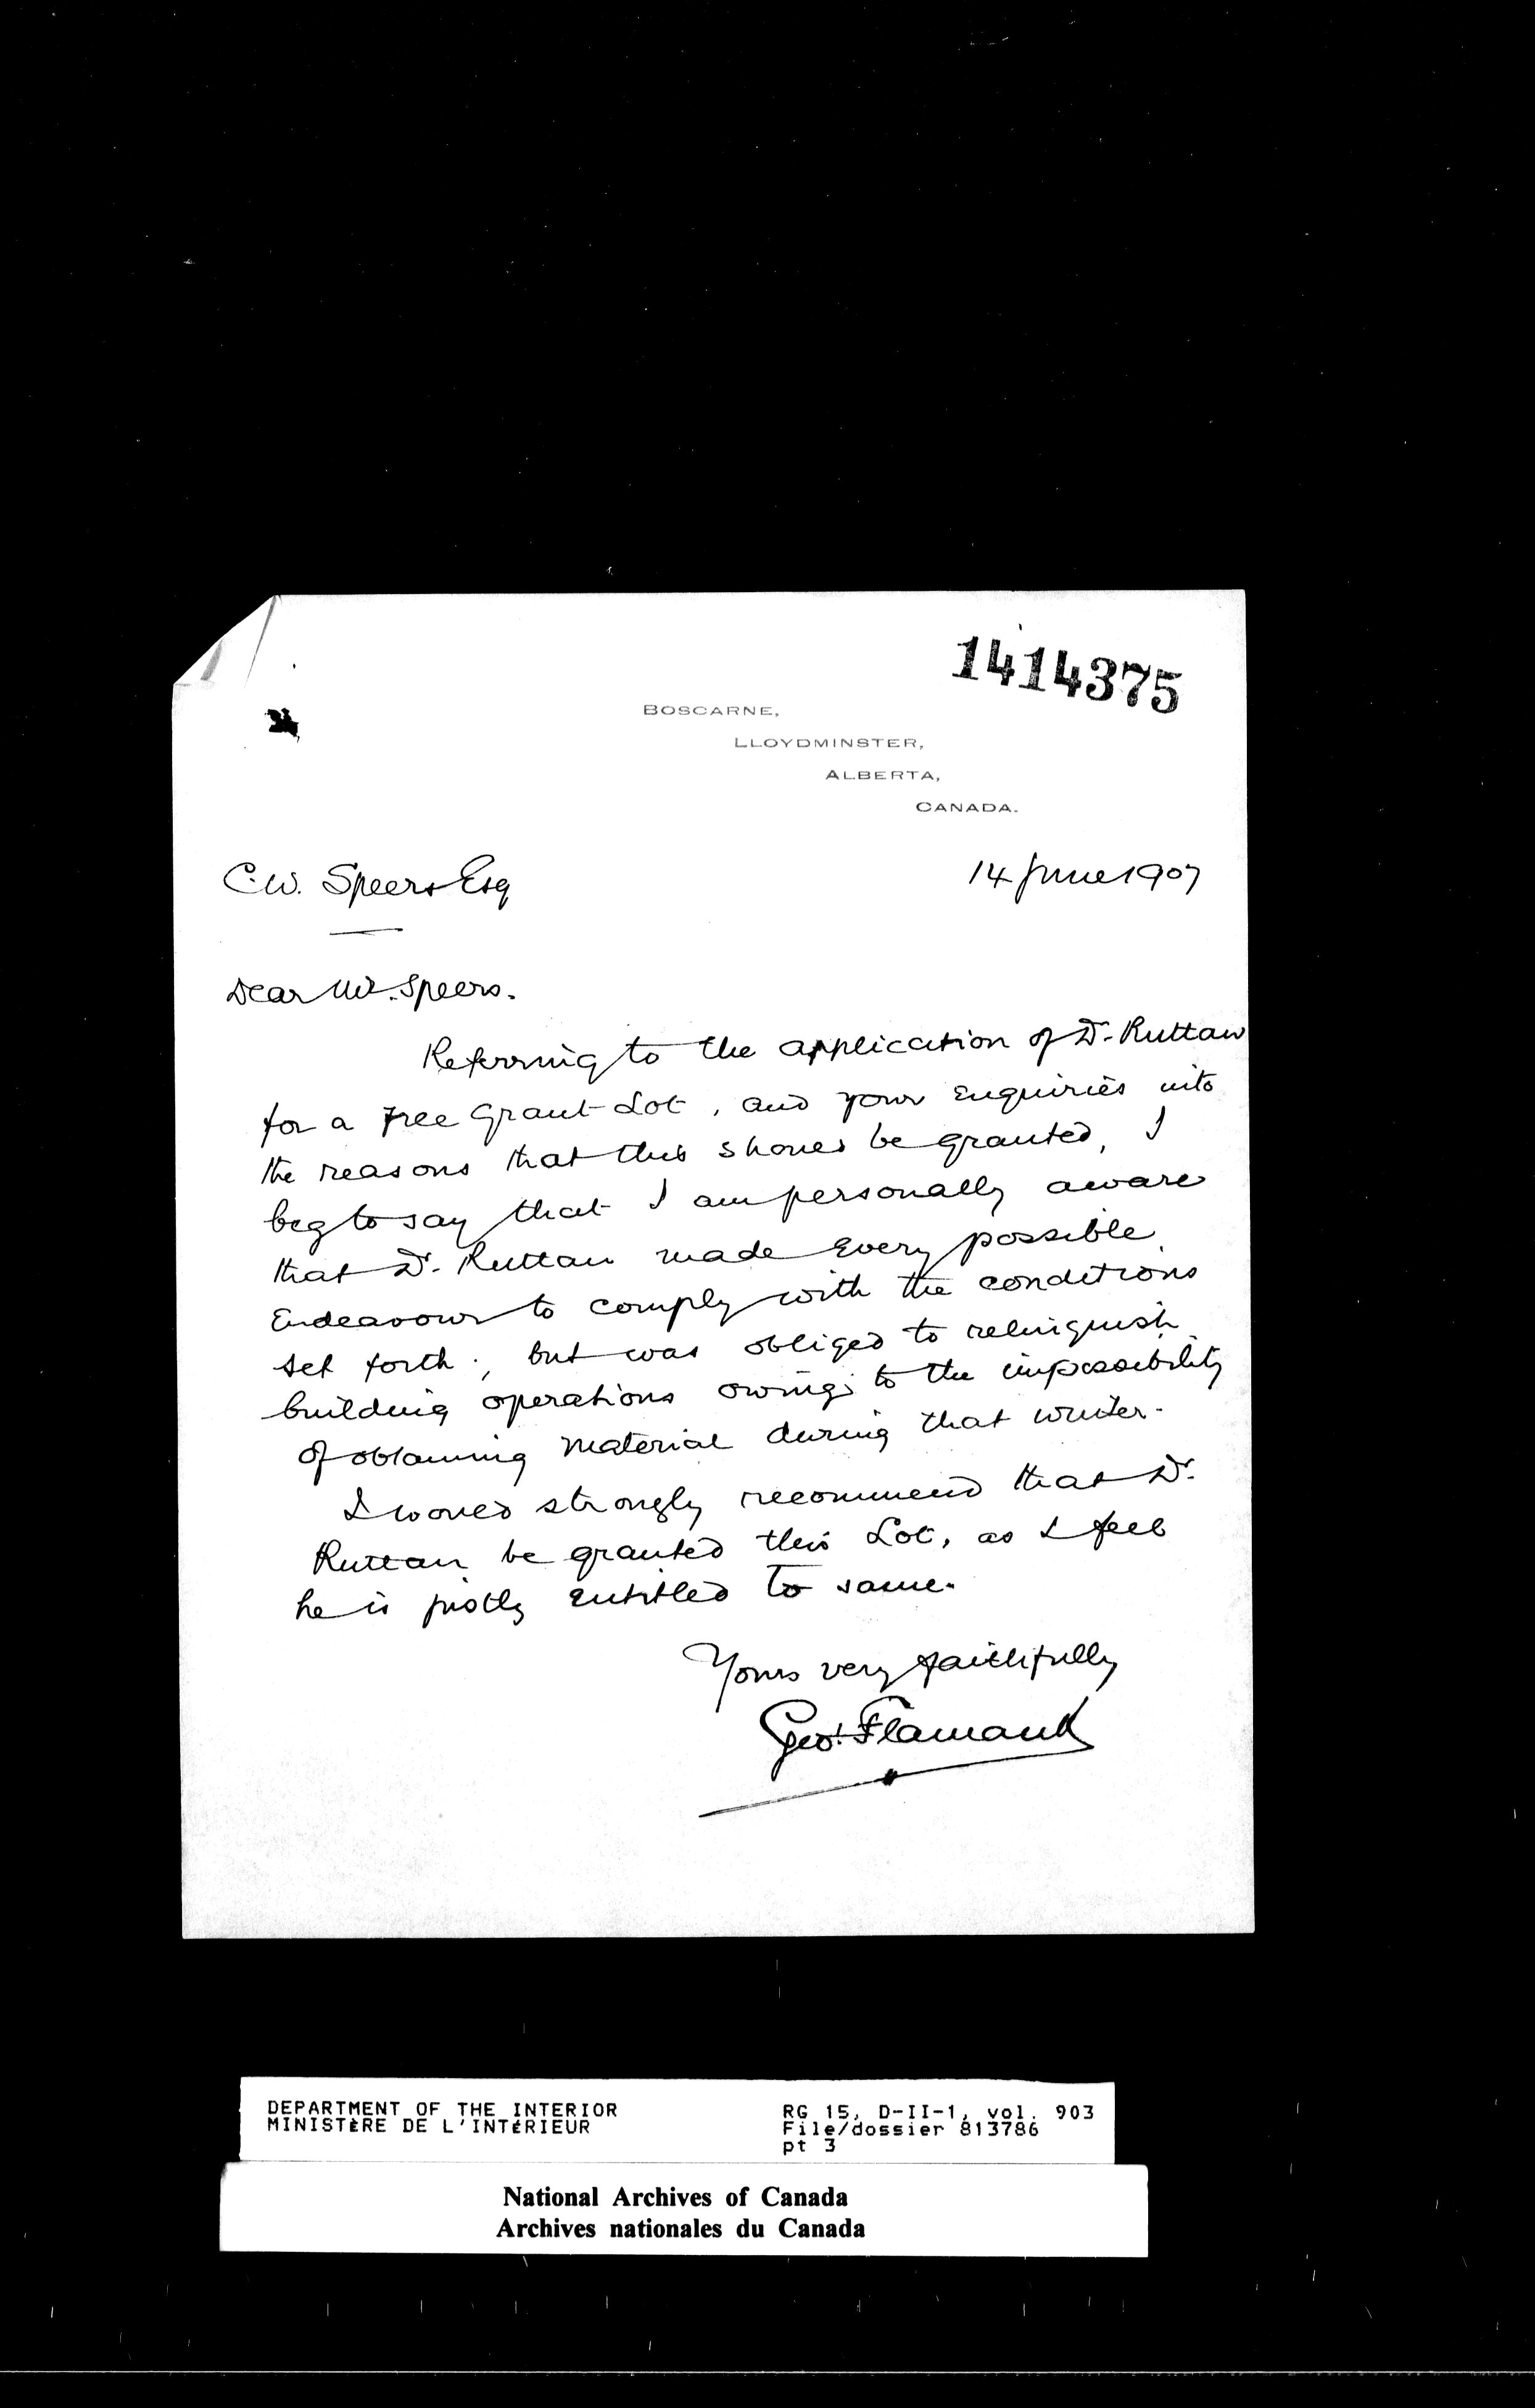 1414375
BOSCARNE,
LLOYDMINSTER,
ALBERTA,
CANADA.
C.W. Speers Esq
14 June 1907
Dear Mr. Speers.
Referring to the application of Dr. Ruttan
for a Free Grant Lot, and your enquiries into
the reasons that this should be granted, I
beg to say that I am personally aware
that Dr. Ruttan made every possible
Endeavour to comply with the conditions
set forth; but was obliged to relinquish
building operations owing to the impossibility
of obtaining material during that winter.
I would strongly recommend that Dr.
Ruttan be granted this Lot, as I feel
he is justly entitled to same.
Yours very faithfully
Geo. Flamank
DEPARTMENT OF THE INTERIOR
MINISTÈRE DE L'INTÉRIEUR
RG 15, D-II-1, vol. 903
File/dossier 813786
pt 3
National Archives of Canada
Archives nationales du Canada